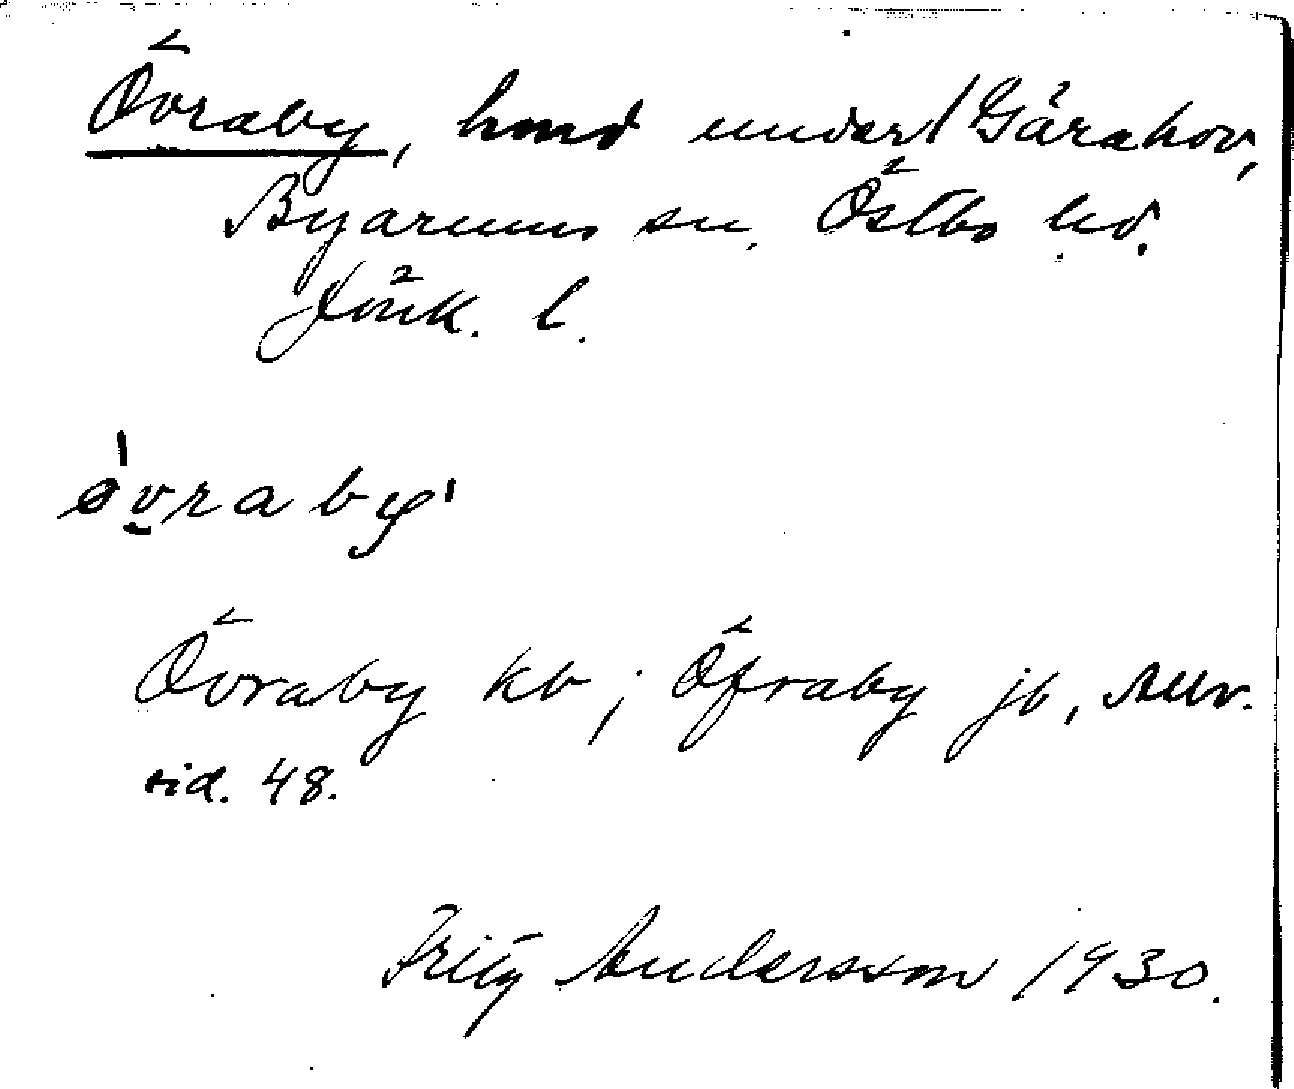 Övraby, hmd under Gårahov,
Byarums sn, Östbo hd.
Jönk. l.
övraby
Övraby kb; Öfraby jb,
sid. 48.
Fritz Andersson 1930.